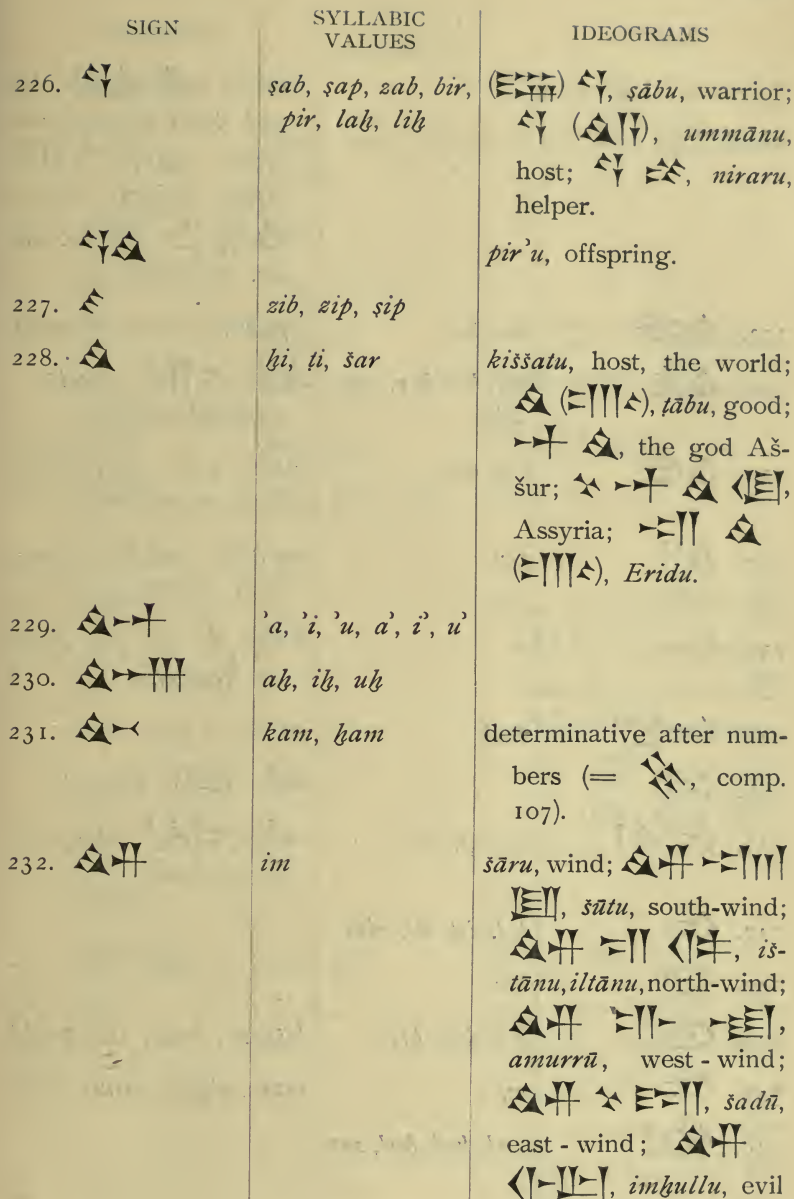 SIGN
SYLLABIC
VALUES
IDEOGRAMS
226. 𒂟
ṣab, ṣap, zab, bir,
pir, laḫ, liḫ
(𒇽) 𒂟, ṣābu, warrior;
𒂟 (𒄭𒀀), ummānu,
host; 𒂟 𒈭, niraru,
helper.
𒂟𒄭
pirʾu, offspring.
227. 𒍦
zib, zip, ṣip
228. 𒄭
ḫi, ṭi, šar
kiššatu, host, the world;
𒄭 (𒂵), ṭābu, good;
𒀭 𒄭, the god Aš-
šur; 𒆳 𒀭 𒄭 𒆠,
Assyria; 𒌷 𒄭
(𒂵), Eridu.
229. 𒀪
ʾa, ʾi, ʾu, aʾ, iʾ, uʾ
230. 𒄴
aḫ, iḫ, uḫ
231. 𒄰
kam, ḫam
determinative after num-
bers (= 𒃸, comp.
107).
232. 𒅎
im
šāru, wind; 𒅎
𒇻, šūtu, south-wind;
𒅎 𒋛 𒁲, iš-
tānu, iltānu, north-wind;
𒅎 𒈥 𒌅,
amurrū, west-wind;
𒅎 𒆳 𒊏, šadū,
east-wind; 𒅎
𒅆𒌨, imḫullu, evil